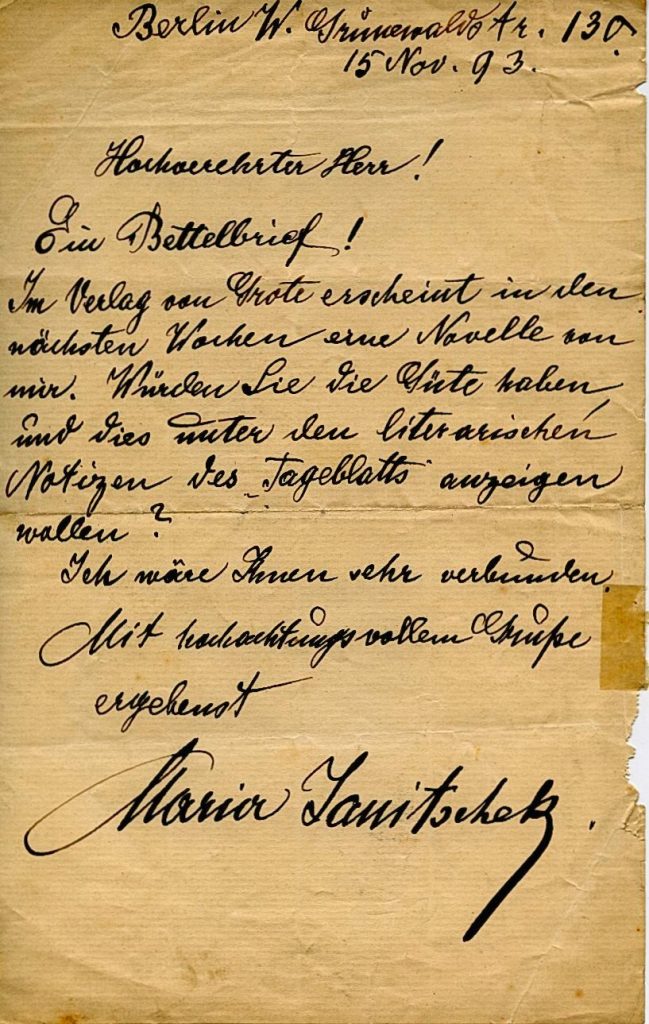 Berlin W. Grunewaldstr. 130.
15 Nov. 93.
Hochverehrter Herr!
Ein Bettelbrief!
Im Verlag von Grote erscheint in den
nächsten Wochen eine Novelle von
mir. Würden Sie die Güte haben,
und dies unter den literarischen
Notizen des „Tageblatts" anzeigen
wollen?
Ich wäre Ihnen sehr verbunden
Mit hochachtungsvollem Gruße
ergebenst
Maria Janitschek.